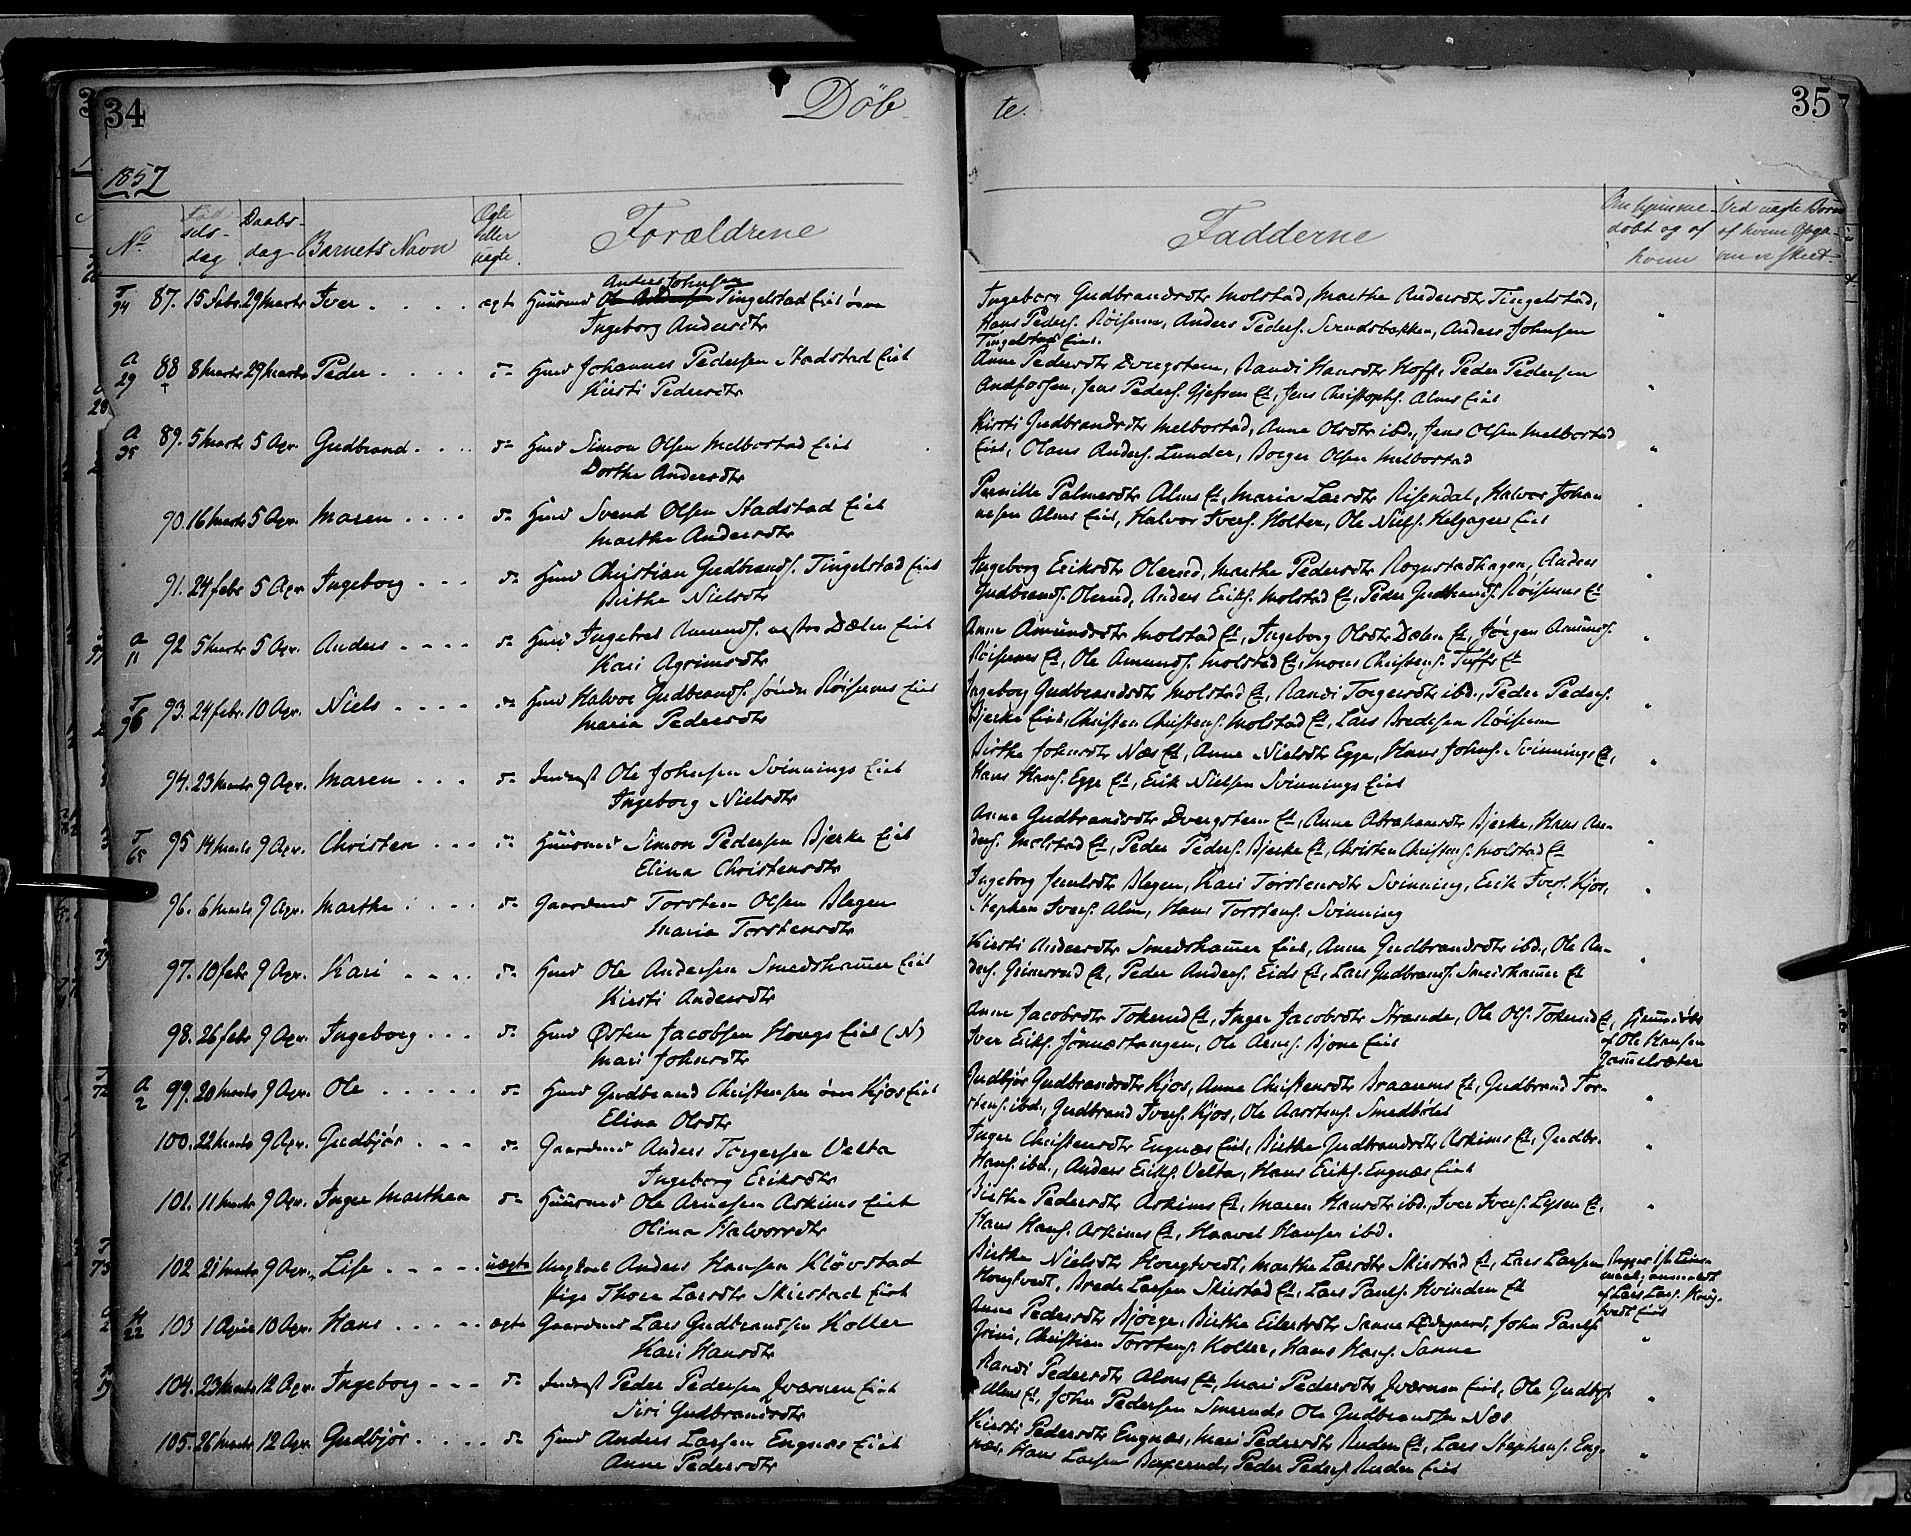 34
Döb
te.
35
1857
No
Fødselsdag
Daabsdag
Barnets Navn
Ægte eller uægte
Forældrene
Fadderne
Om hjemmedöbt og af hvem
Ved uægte Börn af hvem Opgaven er skeet
T 94 87. 15 Febr. 29 Marts Iver .... ægte Huusmd Anders Johnsen Tingelstad Eiet
Ingeborg Andersdtr
Ingeborg Gudbrandsdtr Molstad, Marthe Andersdtr Tingelstad,
Hans Peders. Röisum, Anders Peders. Svendsbakken, Anders Johnsen
Tingelstad Eiet.
A 29 88 8 Marts 29 Marts Peder .... do Husmd Johannes Pedersen Stadstad Eiet
Kirsti Pedersdtr
Anne Pedersdtr Dvergsten, Randi Hansdtr Hoff, Peder Pedersen
Andfossen, Jens Peders. Gjefsen Et, Jens Christophs. Alms Eiet
A 35 89. 5 Marts 5 Apr. Gudbrand .... do Husmd Simon Olsen Melbostad Eiet
Dorthe Andersdtr
Kirsti Gudbrandsdtr Melbostad, Anne Olsdtr ibd., Jens Olsen Melbostad
Eiet, Olaus Anders. Lunder, Borger Olsen Melbostad
90. 16 Marts 5 Apr. Maren .... do Husmd Svend Olsen Stadstad Eiet
Marthe Andersdtr
Pernille Palmesdtr Alms Et, Maria Larsdtr Risendal, Halvor Johan
nesen Alms Eiet, Halvor Ivers. Holter, Ole Niels. Helgager Eiet
91. 24 Febr. 5 Apr. Ingeborg ... do Husmd Christian Gudbrands. Tingelstad Eiet
Birthe Nielsdtr
Ingeborg Eriksdtr Olerud, Marthe Pedersdtr Rognstadhagen, Anders
Gudbrands. Olerud, Anders Eriks. Molstad Et, Peder Gudbrands. Röisums Et
A 11 92 5 Marts 5 Apr. Anders .... do Husmd Ingebret Amunds. vestre Dælen Eiet
Kari Agrimsdtr
Anne Amundsdtr Molstad Et, Ingeborg Olsdtr Dælen Et, Jörgen Amunds.
Röisums Et, Ole Amunds. Molstad Et, Mons Christens. Tufte Et
T 96 93. 24 febr. 10 Apr. Niels .... do Husmd Halvor Gudbrands. söndre Röisums Eiet
Maria Pedersdtr
Ingeborg Gudbrandsdtr Molstad Et, Randi Torgersdtr ibd., Peder Peders.
Bjerke Eiet, Christen Christens. Molstad Et, Lars Bredesen Röisum
94. 23 Marts 9 Apr. Maren ... do Inderst Ole Johnsen Svinnings Eiet
Ingeborg Nielsdtr
Birthe Johnsdtr Næs Et, Anne Nielsdtr Egge, Hans Johns. Svinnings Et,
Hans Hans. Egge Et, Erik Nielsen Svinnings Eiet
T 65 95 14 Marts 9 Apr. Christen ... do Huusmd Simon Pedersen Bjerke Eiet
Elina Christensdtr
Anne Gudbrandsdtr Dvergsten Et, Anne Abrahamsdtr Bjerke, Hans An-
ders. Molstad Et, Peder Peders. Bjerke Et, Christen Christens. Molstad Et
96. 6 Marts 9 Apr. Marthe .... do Gaardmd Torsten Olsen Blegen
Maria Torstensdtr
Ingeborg Blegen, Kari Torstensdtr Svinning, Erik Ivers. Kjos,
Stephen Ivers. Alm, Hans Torstens. Svinning
97. 10 febr 9 Apr. Kari .... do Husmd Ole Andersen Smedshammer Eiet
Kirsti Andersdtr
Kirsti Andersdtr Smedshammer Eiet, Anne Gudbrandsdtr ibd., Ole An-
ders. Grimsrud Et, Peder Anders. Eids Et, Lars Gudbrands. Smedshammer Et
98. 26 febr 9 Apr. Ingeborg ... do Husmd Östen Jacobsen Hougs Eiet (N)
Mari Johnsdtr
Anne Jacobsdtr Tokerud Et, Inger Jacobsdtr Strande, Ole Ols. Tokerud Et,
Iver Eriks. Jönnæstangen, Ole Arnes. Bjone Eiet
Hjemmedöbt
af Ole Hansen
A 2 99. 20 Marts 9 Apr. Ole ..... do Husmd Gudbrand Christensen övre Kjos Eiet
Elina Olsdtr
Gudbjör Gudbrandsdtr Kjos, Anne Christensdtr Braarums Et, Gudbrand Tor-
stens. ibd., Gudbrand Ivers. Kjos, Ole Aastens. Smedböle
100. 22 Marts 9 Apr. Gudbjör ... do Gaardmd Anders Torgersen Velta
Ingeborg Eriksdtr
Inger Christensdtr Engnæs Eiet, Birthe Gudbrandsdtr Askims Et, Gudbr.
Hans. ibd., Anders Eriks. Velta, Hans Eriks. Engnæs Eiet
101. 11 Marts 9 Apr. Inger Marthea do Huusmd Ole Arnesen Askims Eiet
Olina Halvorsdtr
Birthe Pedersdtr Askims Et, Maren Hansdtr ibd., Iver Ivers. Lysen Et,
Hans Hans. Askims Et, Haavel Hansen ibd.
102. 21 Marts 9 Apr. Lise .... uægte Ungkarl Anders Hansen Klövstad
Pige Thora Larsdtr Skiestad Eiet
Birthe Nielsdtr Hougtvedt, Marthe Larsdtr Skiestad Et, Lars Larsen
Hougtvedt, Brede Larsen Skiestad Et, Lars Pauls. Hvinden Et
Begges 1ste Leier-
maal; anmeldt
af Lars Lars. Houg-
tvedt Eiet
H 22 103 1 April 10 Apr. Hans .... ægte Gaardmd Lars Gudbrandsen Koller
Kari Hansdtr
Anne Pedersdtr Björge, Birthe Eilertsdtr Sanne Ödegaard, John Pauls.
Grini, Christian Torstens. Koller, Hans Hans. Sanne
104. 23 Marts 12 Apr. Ingeborg ... do Inderst Peder Pedersen Qværnen Eiet
Siri Gudbrandsdtr
Randi Pedersdtr Alms Et, Mari Pedersdtr Qværnen Eiet, Ole Gudbr.
Alms Et, John Pedersen Smerud, Ole Gudbrandsen Næs
105. 26 Marts 12 Apr. Gudbjör .... do Husmd Anders Larsen Engnæs Eiet
Anne Pedersdtr
Kirsti Pedersdtr Engnæs, Mari Pedersdtr Ruden Et, Lars Stephens. Eng-
næs, Hans Larsen, Peder Peders. Ruden Eiet